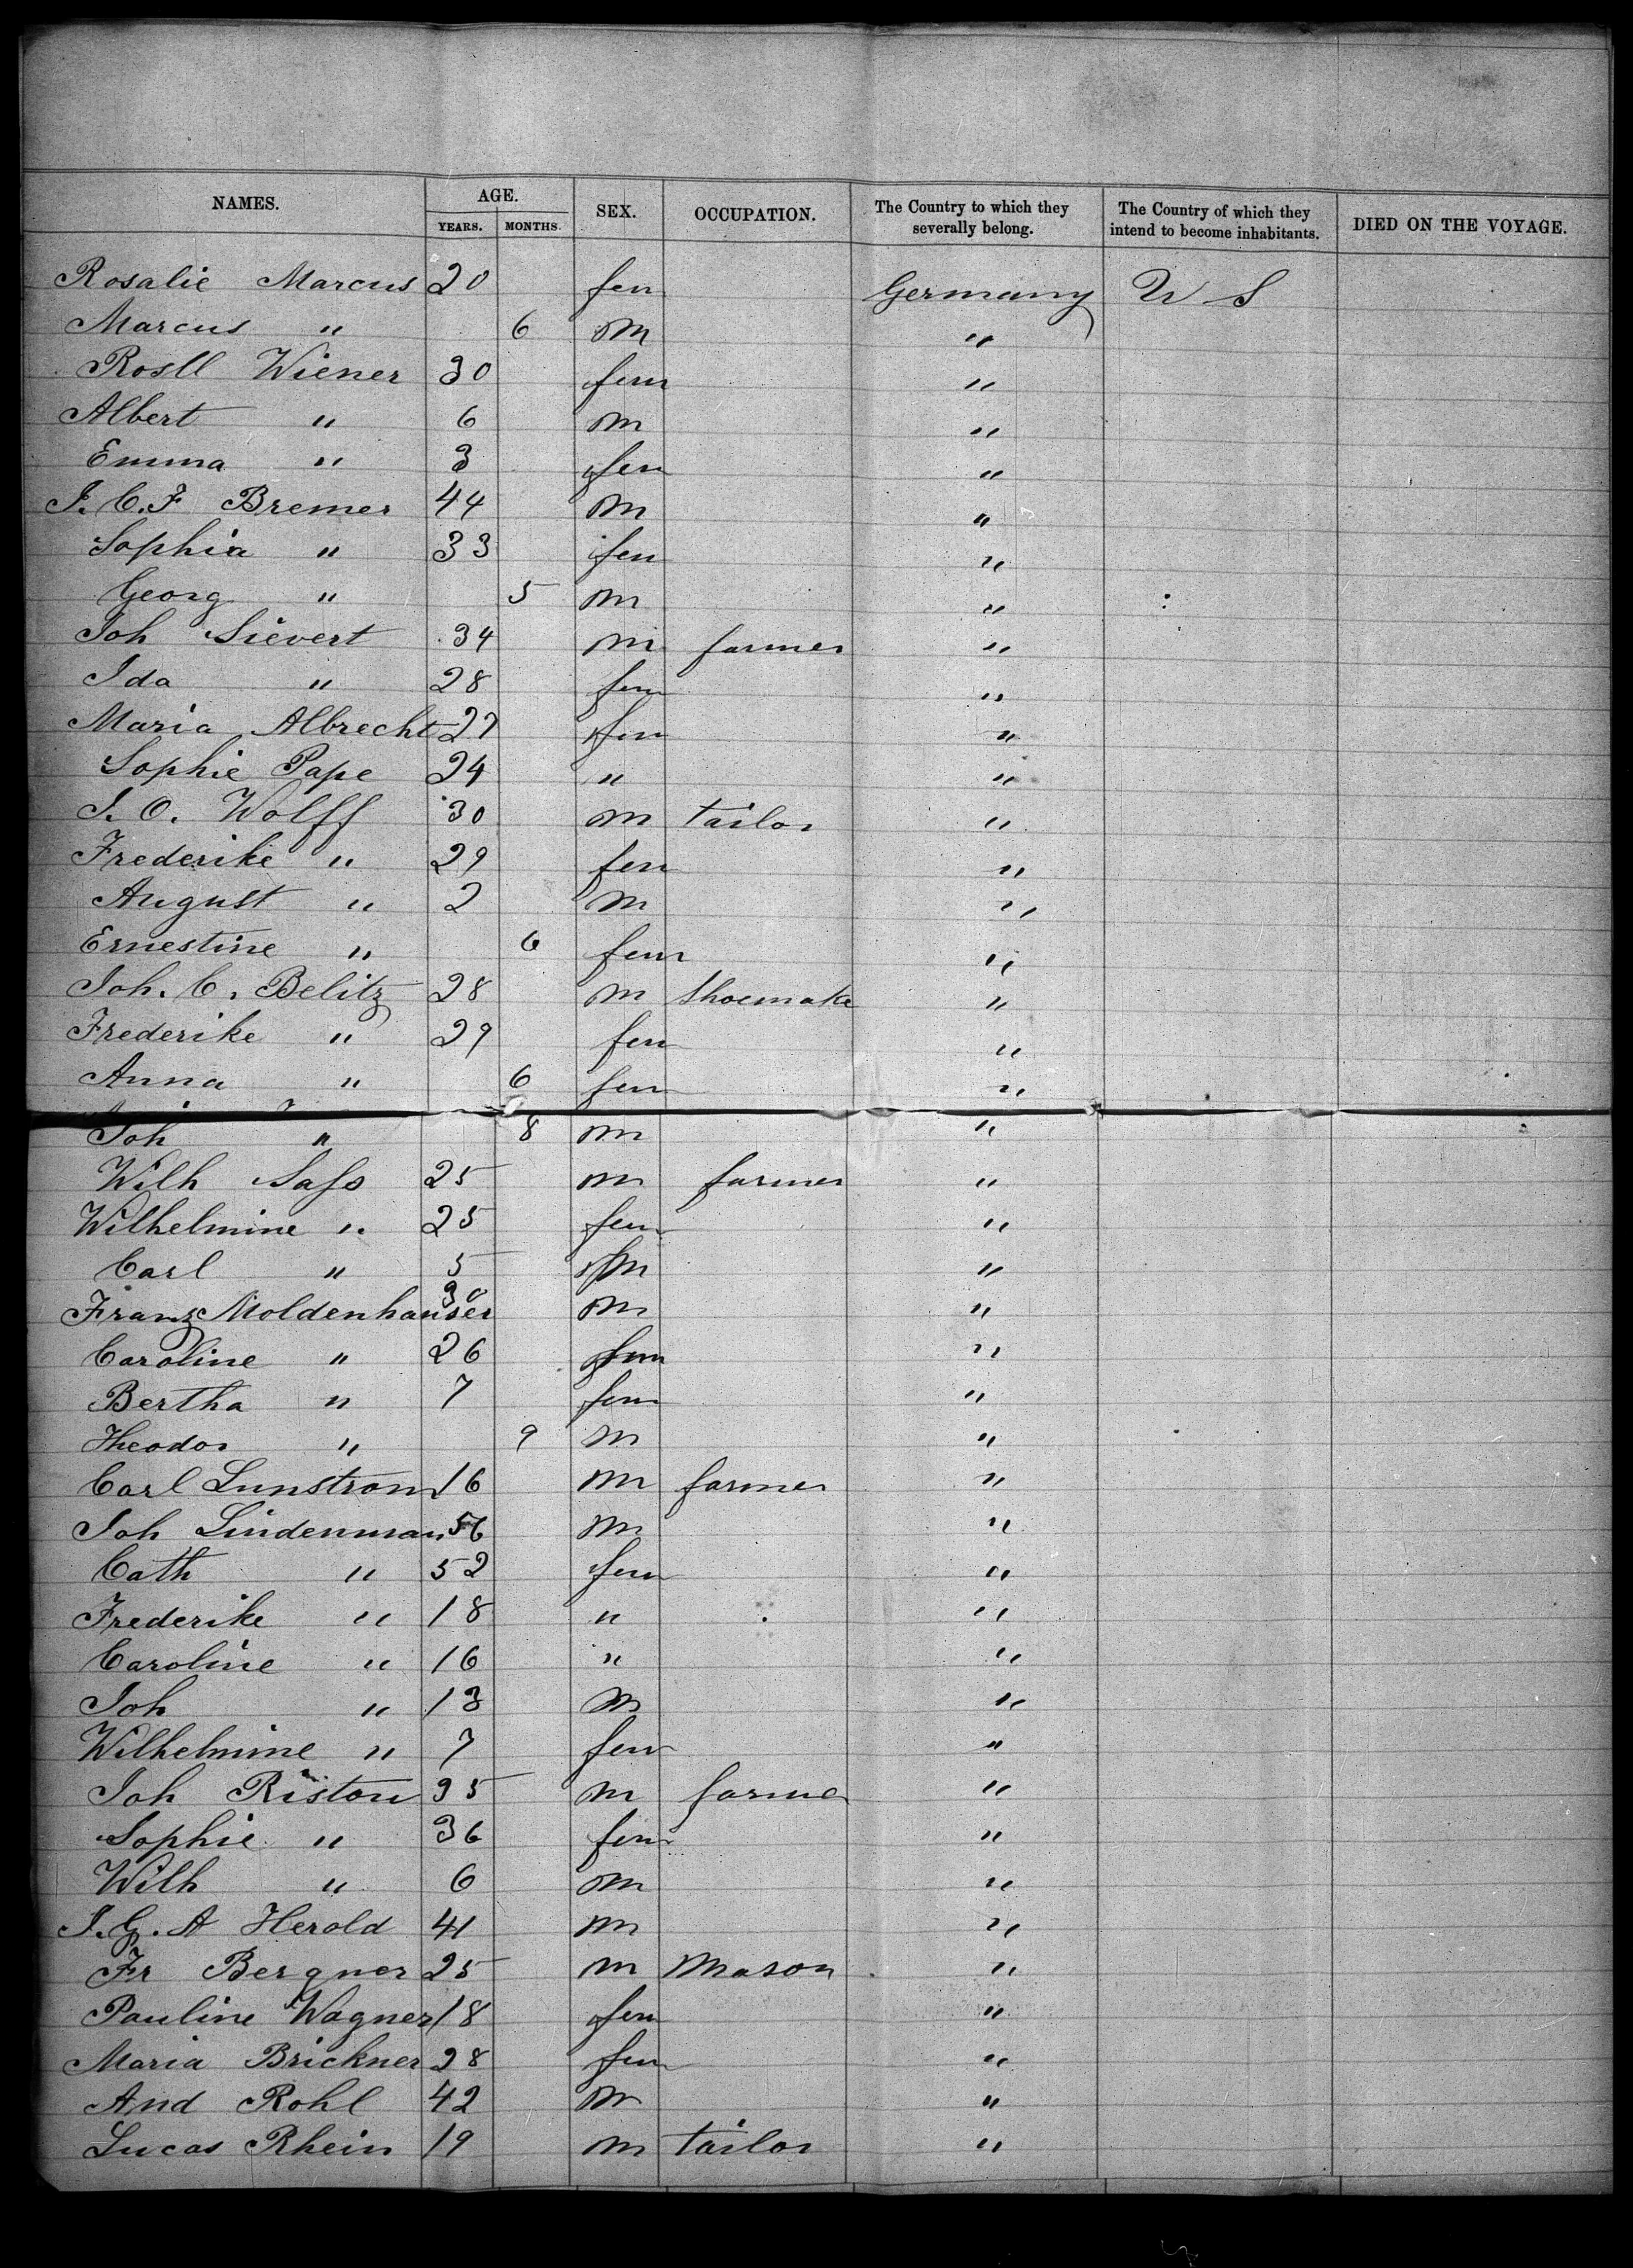 NAMES. AGE. SEX. OCCUPATION. The Country to which they severally belong. The Country of which they intend to become inhabitants. DIED ON THE VOYAGE.
YEARS. MONTHS.
Rosalie Marcus 20 fem Germany U S
Marcus " 6 m "
Rosll Wiener 30 fem "
Albert " 6 m "
Emma " 3 fem "
J. C. F Bremer 44 m "
Sophia " 33 fem "
Georg " 5 m "
Joh Sievert 34 m farmer "
Ida " 28 fem "
Maria Albrecht 27 fem "
Sophie Pape 24 " "
J. O. Wolff 30 m tailor "
Frederike " 29 fem "
August " 2 m "
Ernestine " 6 fem "
Joh. C. Belitz 28 m Shoemake "
Frederike " 29 fem "
Anna " 6 fem "
Joh " 8 m "
Wilh Sass 25 m farmer "
Wilhelmine " 25 fem "
Carl " 5 m "
Franz Moldenhauser 30 m "
Caroline " 26 fem "
Bertha " 7 fem "
Theodor " 9 m "
Carl Lunstrom 16 m farmer "
Joh Lindenman 56 m "
Cath " 52 fem "
Frederike " 18 " "
Caroline " 16 " "
Joh " 13 m "
Wilhelmine " 7 fem "
Joh Riston 35 m farmer "
Sophie " 36 fem "
Wilh " 6 m "
J. G. A Herold 41 m "
Fr Bergner 25 m Mason "
Pauline Wagner 18 fem "
Maria Brickner 28 fem "
And Rohl 42 m "
Lucas Rhein 19 m tailor "